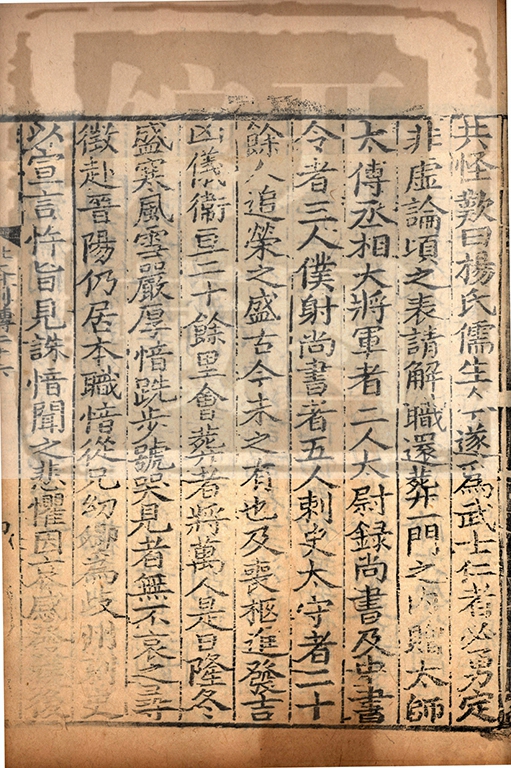 共怪歎曰楊氏儒生今遂爲武士仁者必勇定
非虛論頃之表請解職還葬一門之内贈太師
太傅丞相大將軍者二人太尉錄尚書及中書
令者三人僕射尚書者五人刺史太守者二十
餘人追榮之盛古今未之有也及喪柩進發吉
凶儀衛亘二十餘里會葬者將萬人是日隆冬
盛寒風雪嚴厚愔跣步號哭見者無不哀之尋
徵赴晉陽仍居本職愔從兄幼卿爲岐州刺史
以宣言忤旨見誅愔聞之悲懼因哀感發後